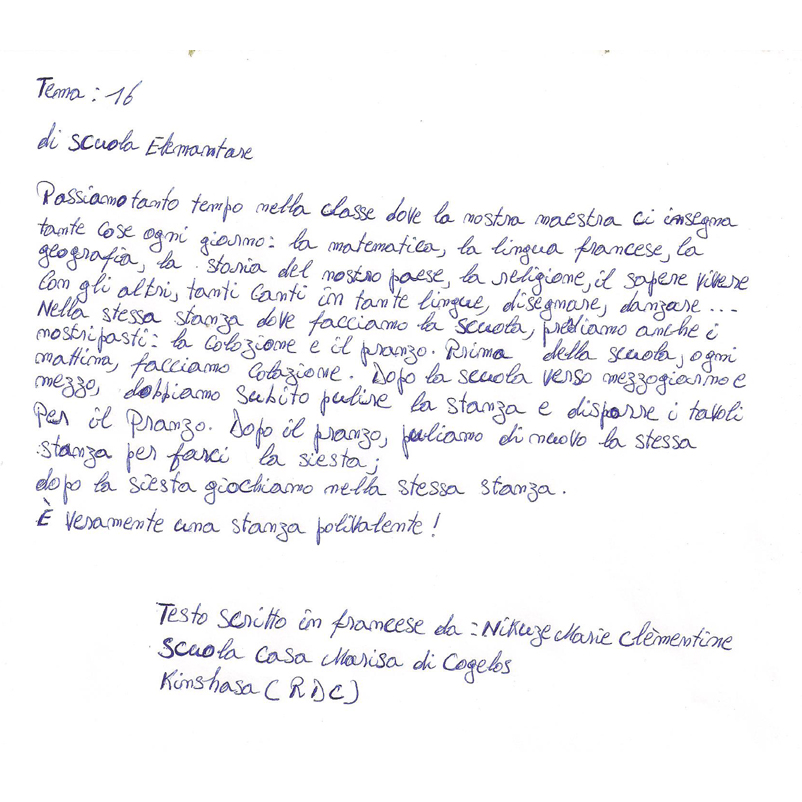 Tema : 16
di scuola Elemantare
Passiamo tanto tempo nella classe dove la nostra maestra ci insegna
tante cose ogni giorno: la matematica, la lingua francese, la
geografia, la storia del nostro paese, la religione, il sapere vivere
con gli altri, tanti canti in tante lingue, disegnare, danzare ...
Nella stessa stanza dove facciamo la scuola, prediamo anche i
nostri pasti: la colozione e il pranzo. Prima della scuola, ogni
mattina, facciamo colazione. Dopo la scuola verso mezzogiorno e
mezzo, dobbiamo subito pulire la stanza e disporre i tavoli
per il pranzo. Dopo il pranzo, puliamo di nuovo la stessa
stanza per farci la siesta;
dopo la siesta giochiamo nella stessa stanza.
È veramente una stanza polivalente!
Testo scritto in francese da : Nikuze Marie Clèmentine
Scuola casa Marisa di Cogelos
Kinshasa (RDC)